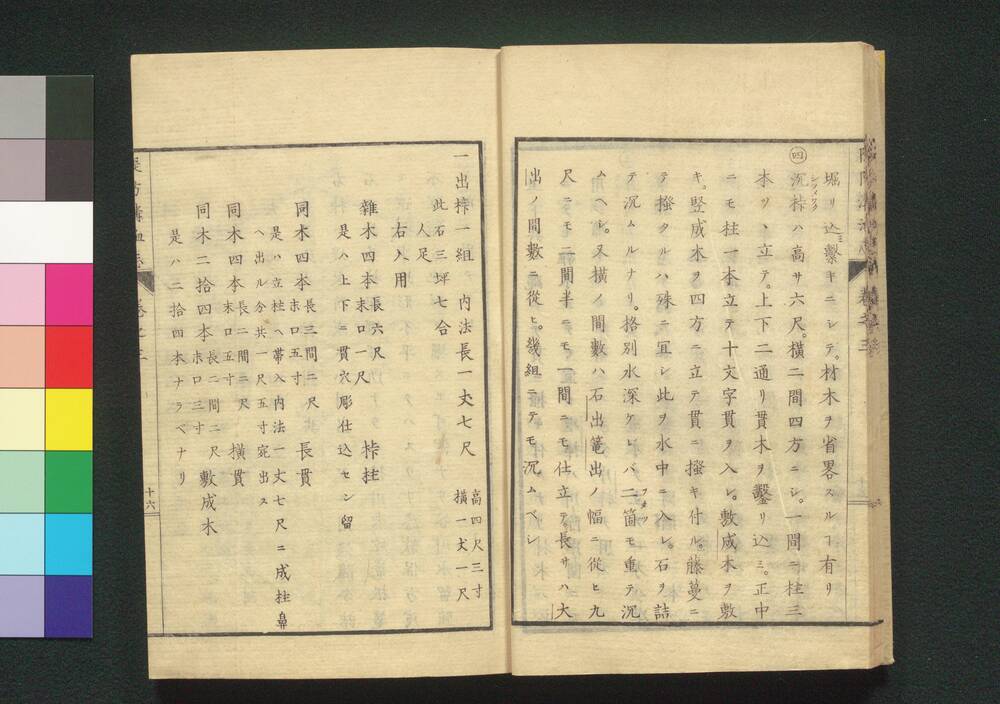 堀リ込ミ繋キニシテ。材木ヲ省畧スルヿ有リ
㊃沉桙ハ高サ六尺。横二間四方ニシ。一間ニ柱三
本ツヽ立テ。上下二通リ貫木ヲ鑿リ込ミ。正中
ニモ柱一本立テ十文字貫ヲ入レ。敷成木ヲ敷
キ。竪成木ヲ四方ニ立テ貫ニ搔キ付ル。藤蔓ニ
テ搔タルハ殊ニ宜シ此ヲ水中ニ入レ。石ヲ詰
テ沉ムルナリ。格別水深ケレバ二箇モ重テ沉
ムヘシ。又横ノ間數ハ石出篭出ノ幅ニ從ヒ九
尺ニモ二間半ニモ三間ニモ仕立テ。長サハ大
出ノ間數ニ從ヒ。幾組ニテモ沉ムベシ
一出桙一組 内法長一丈七尺 高四尺三寸 横一丈一尺
此石三坪七合
人足
右入用
雜木四本 長六尺 末口一尺 桙柱
是ハ上下ニ貫穴彫仕込セン留
同木四本 長三間二尺 末口五寸 長貫
是ハ立柱ヘ帶入内法一丈七尺ニ成柱鼻
ヘ出ル分共一尺五寸宛出ス
同木四本 長二間二尺 末口五寸 横貫
同木二拾四本 長二間二尺 末口三寸 敷成木
是ハ二拾四本ナラベナリ
十六